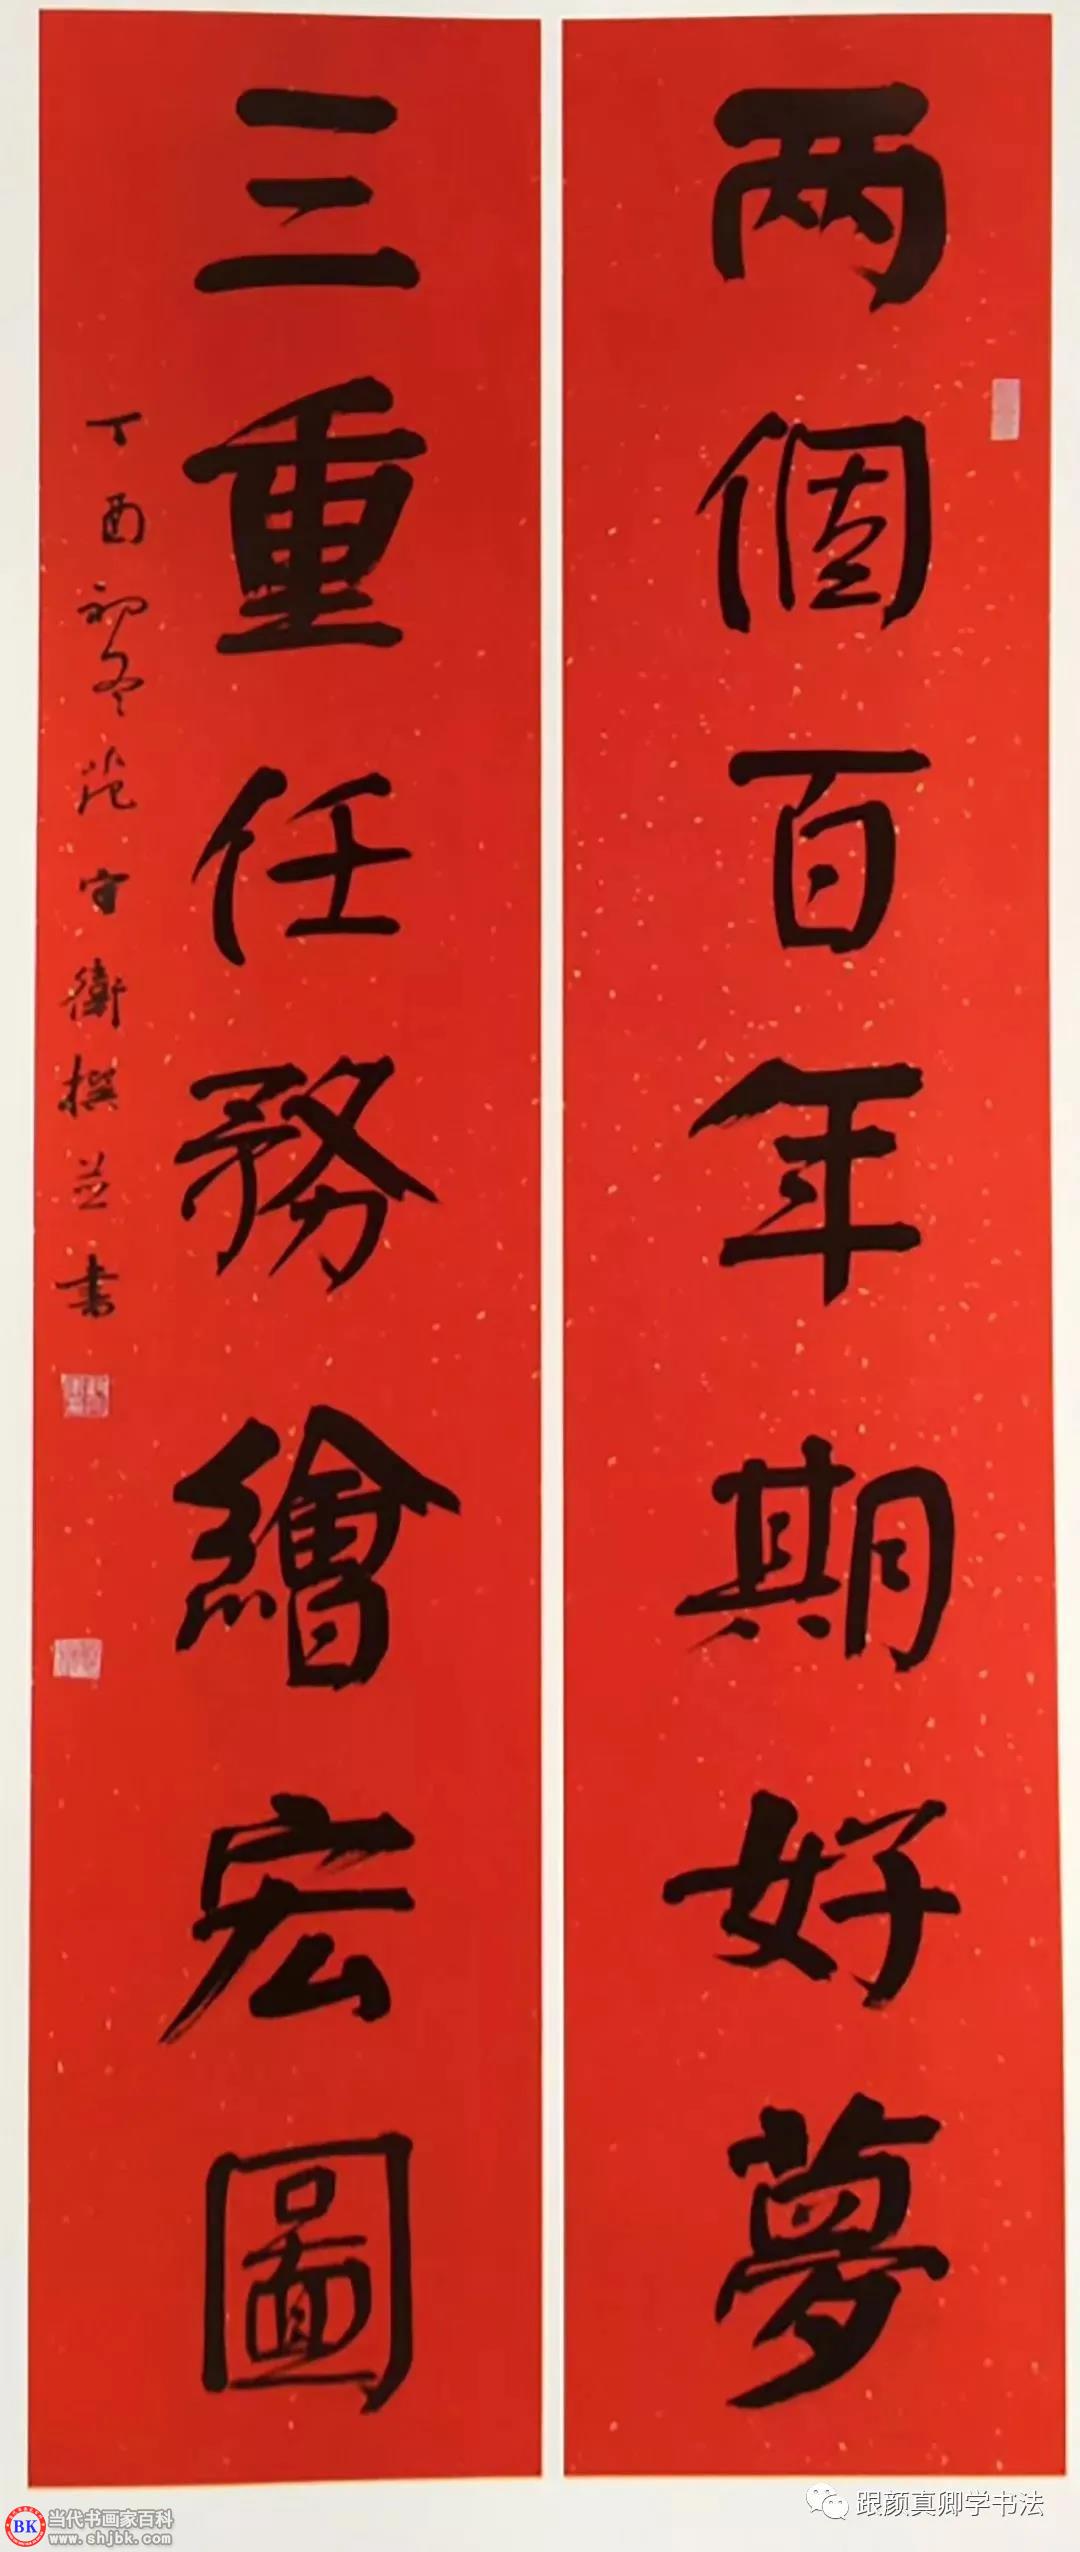 两個百年期好夢
三重任務繪宏圖
丁酉初冬范守衛撰並书
跟颜真卿学书法
BK
当代书画家百科
www.shjbk.com